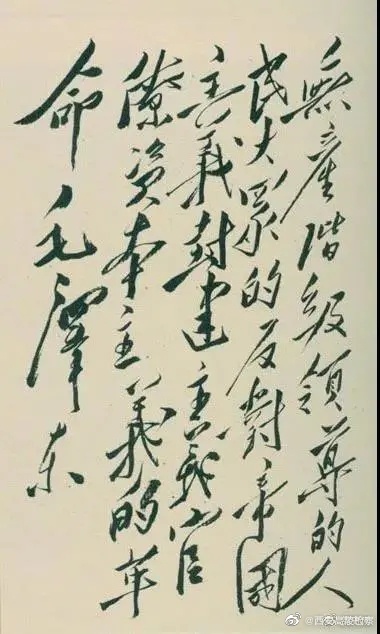 無產階級領導的人
民大眾的反對帝國
主義封建主義官
僚資本主義的革
命 毛澤东
@西安高陵检察